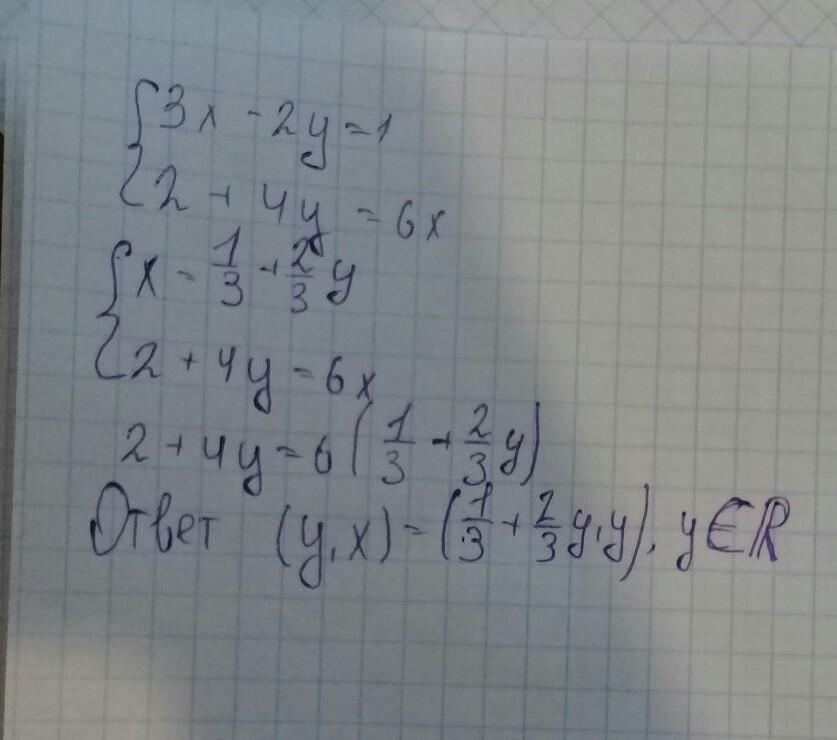 {3x - 2y = 1
{2 + 4y = 6x
{x = 1/3 + 2/3 y
{2 + 4y = 6x
2 + 4y = 6(1/3 + 2/3 y)
Ответ (y, x) = (1/3 + 2/3 y, y), y ∈ ℝ